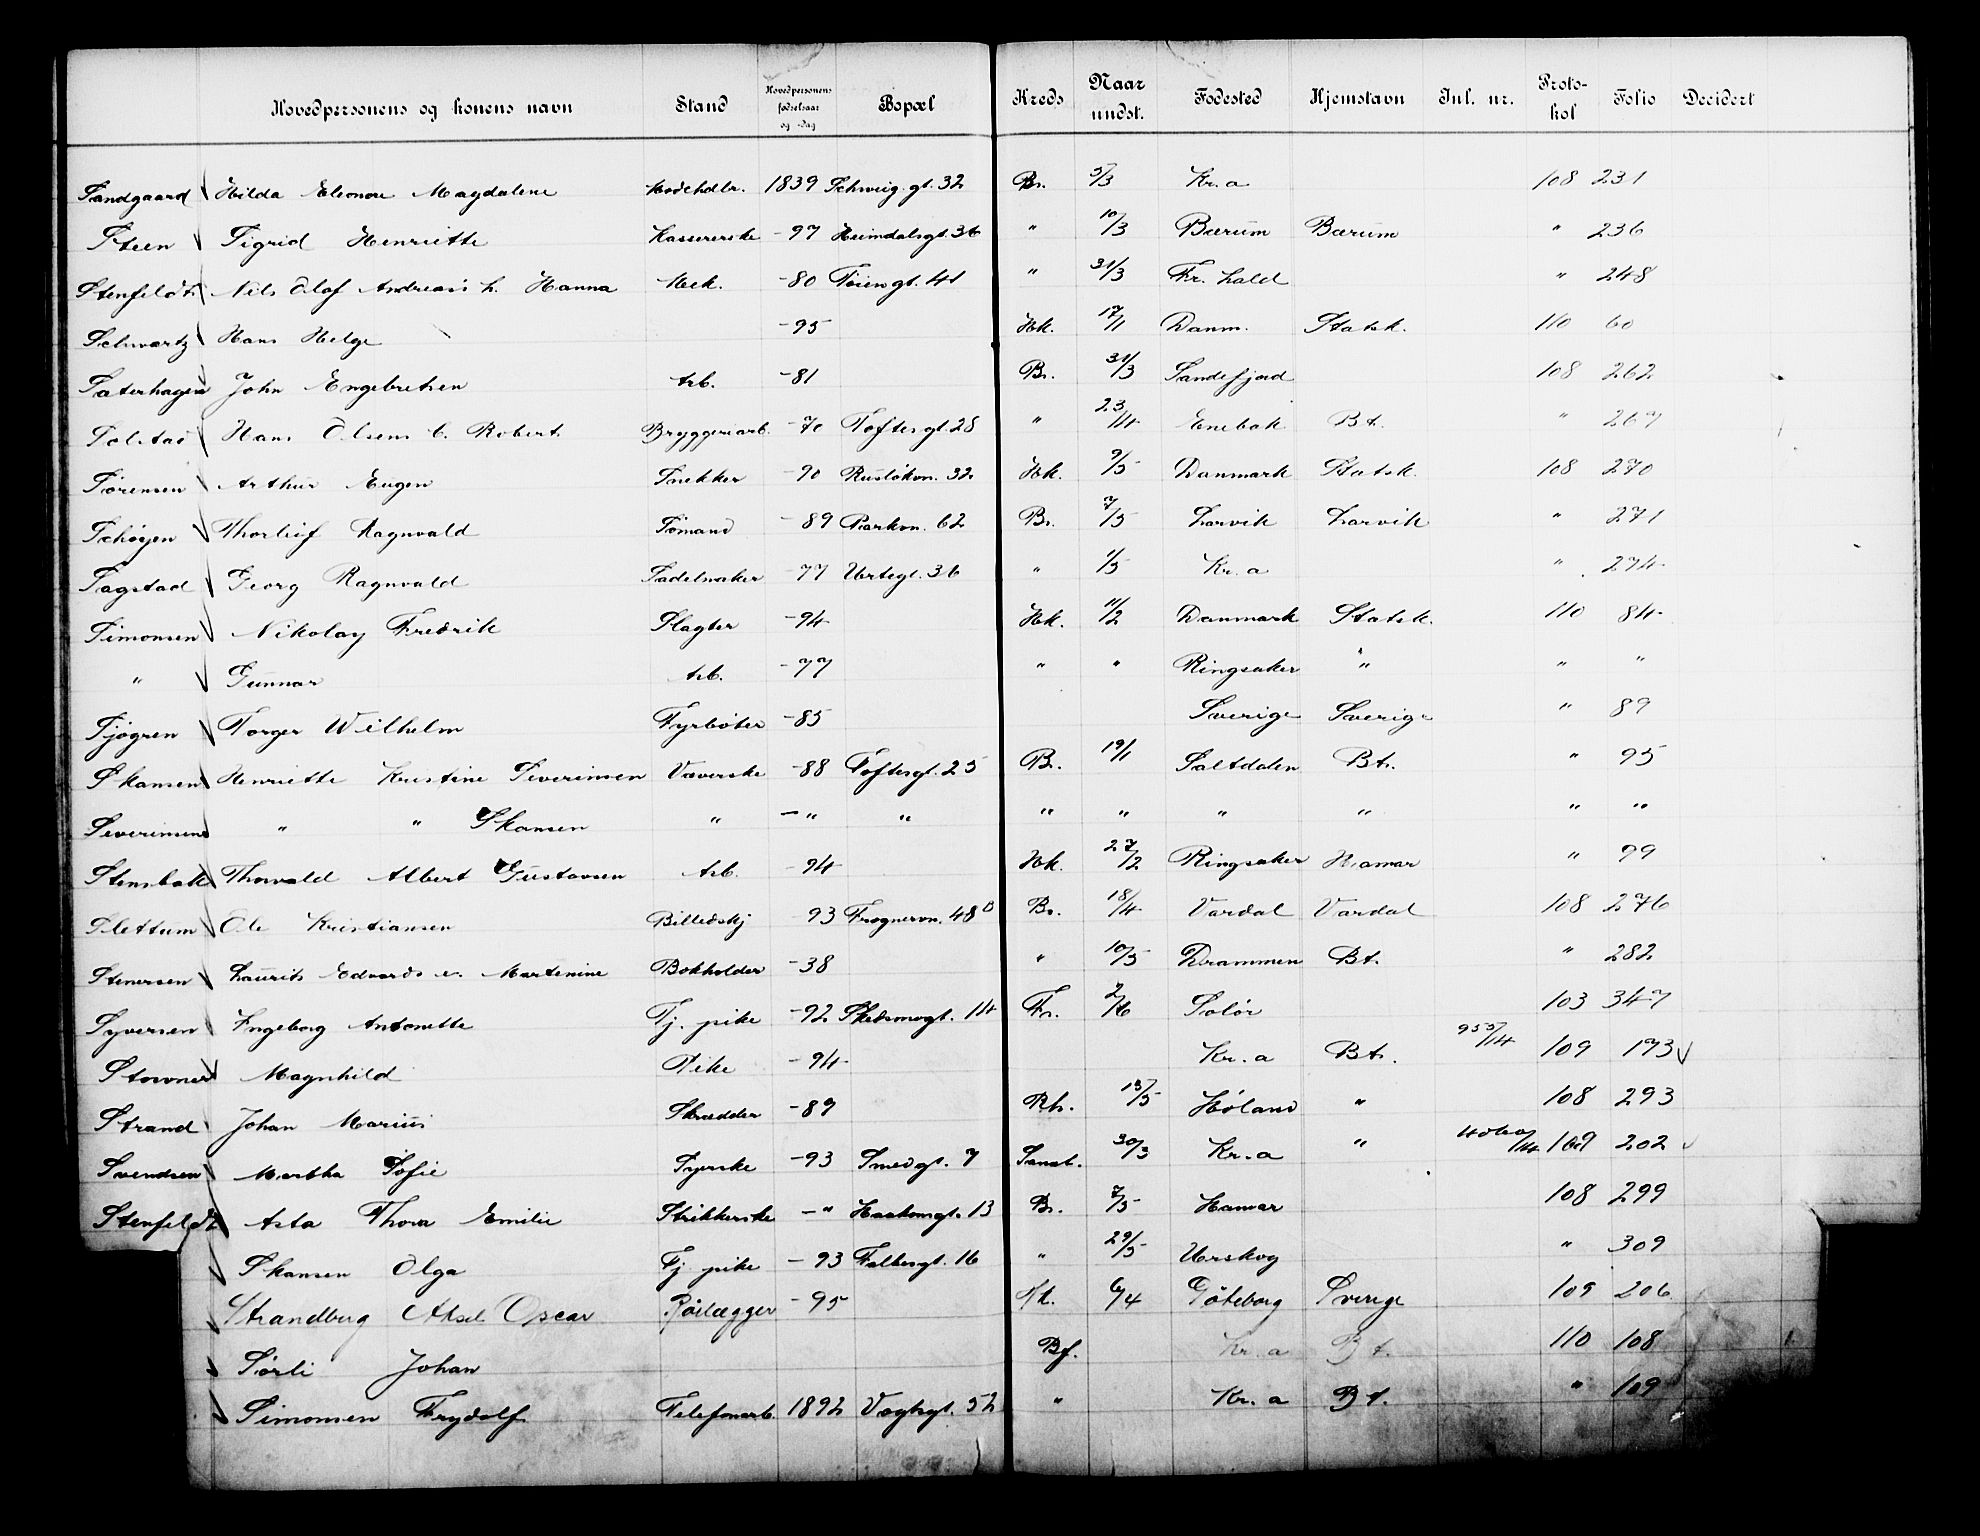 Hovedpersonens og konens navn Stand Hovedpersonens fødselsaar og -dag Bopæl Kreds Naar undst. Fødested Hjemstavn Jnl. nr. Protokol Folio Decidert
Sandgaard Hilda Eleonore Magdalene Modehdlr. 1839 Schweig. gt. 32 Br. 5/3 Kr.a 108 231
Steen Sigrid Henriette Kassererske -97 Heimdalsgt. 36 " 10/3 Bærum Bærum " 236
Stenfeldt Nils Olaf Andreas h. Hanna Mek. -80 Tøiengt. 41 " 31/3 Fr. hald " 248
Schwartz Hans Helge -95 Hk. 17/1 Danm. Statsk. 110 60
Sæterhagen John Engebretsen Arb. -81 Br. 31/3 Sandefjord 108 262
Solstad Hans Olsens e. Robert Bryggeriarb. -70 Toftesgt. 28 " 23/4 Enebak Bt. " 267
Sørensen Arthur Eugen Snekker -90 Ruseløkvn. 32 Hk. 9/5 Danmark Statsk. 108 270
Schøyen Thorleif Ragnvald Sømand -89 Parkvn. 62 Br. 7/5 Larvik Larvik " 271
Sagstad Georg Ragnvald Sadelmaker -77 Urtegt. 36 " 1/5 Kr.a " 274
Simonsen Nikolay Fredrik Slagter -94 Hk. 11/2 Danmark Statsk. 110 84
" Gunnar Arb. -77 " " Ringsaker " " "
Sjøgren Torger Wilhelm Fyrbøter -85 Sverige Sverige " 89
Skansen Henriette Kristine Severinsen Væverske -88 Toftesgt. 25 Br. 19/1 Saltdalen Bt. " 95
Severinsen " " Skansen " - " " " " " " " "
Stensbak Thorvald Albert Gustavsen Arb. -94 Hk. 27/2 Ringsaker Hamar " 99
Slettum Ole Kristiansen Billedskj -93 Frognervn. 48 B Br. 18/4 Vardal Vardal 108 276
Stenersen Laurits Edvards e. Martenine Bokholder -38 " 10/5 Drammen Bt. " 282
Syversen Ingeborg Antonette Tj. pike -92 Skedsmogt. 14 Fr. 2/6 Solør 103 347
Stovner Magnhild Pike -94 Kr.a Bt. 953/14 109 193
Strand Johan Marius Skrædder -89 Rh. 13/5 Høland " 108 293
Svendsen Martha Sofie Syerske -93 Smedgt. 7 30/3 Kr.a " 109 202
Stenfeldt Asta Thora Emilie Strikkerske -" Haakonsgt. 13 Br. 7/5 Hamar 108 299
Skansen Olga Tj. pike -93 Falbesgt. 16 " 29/5 Urskog " 309
Strandberg Aksel Oscar Rørlægger -95 6/4 Göteborg Sverige 109 206
Sørli Johan Bf. Kr.a Bt. 110 108
Simonsen Frydolf Telefonarb. 1892 Vogtsgt. 52 " Kr.a Bt. " 109